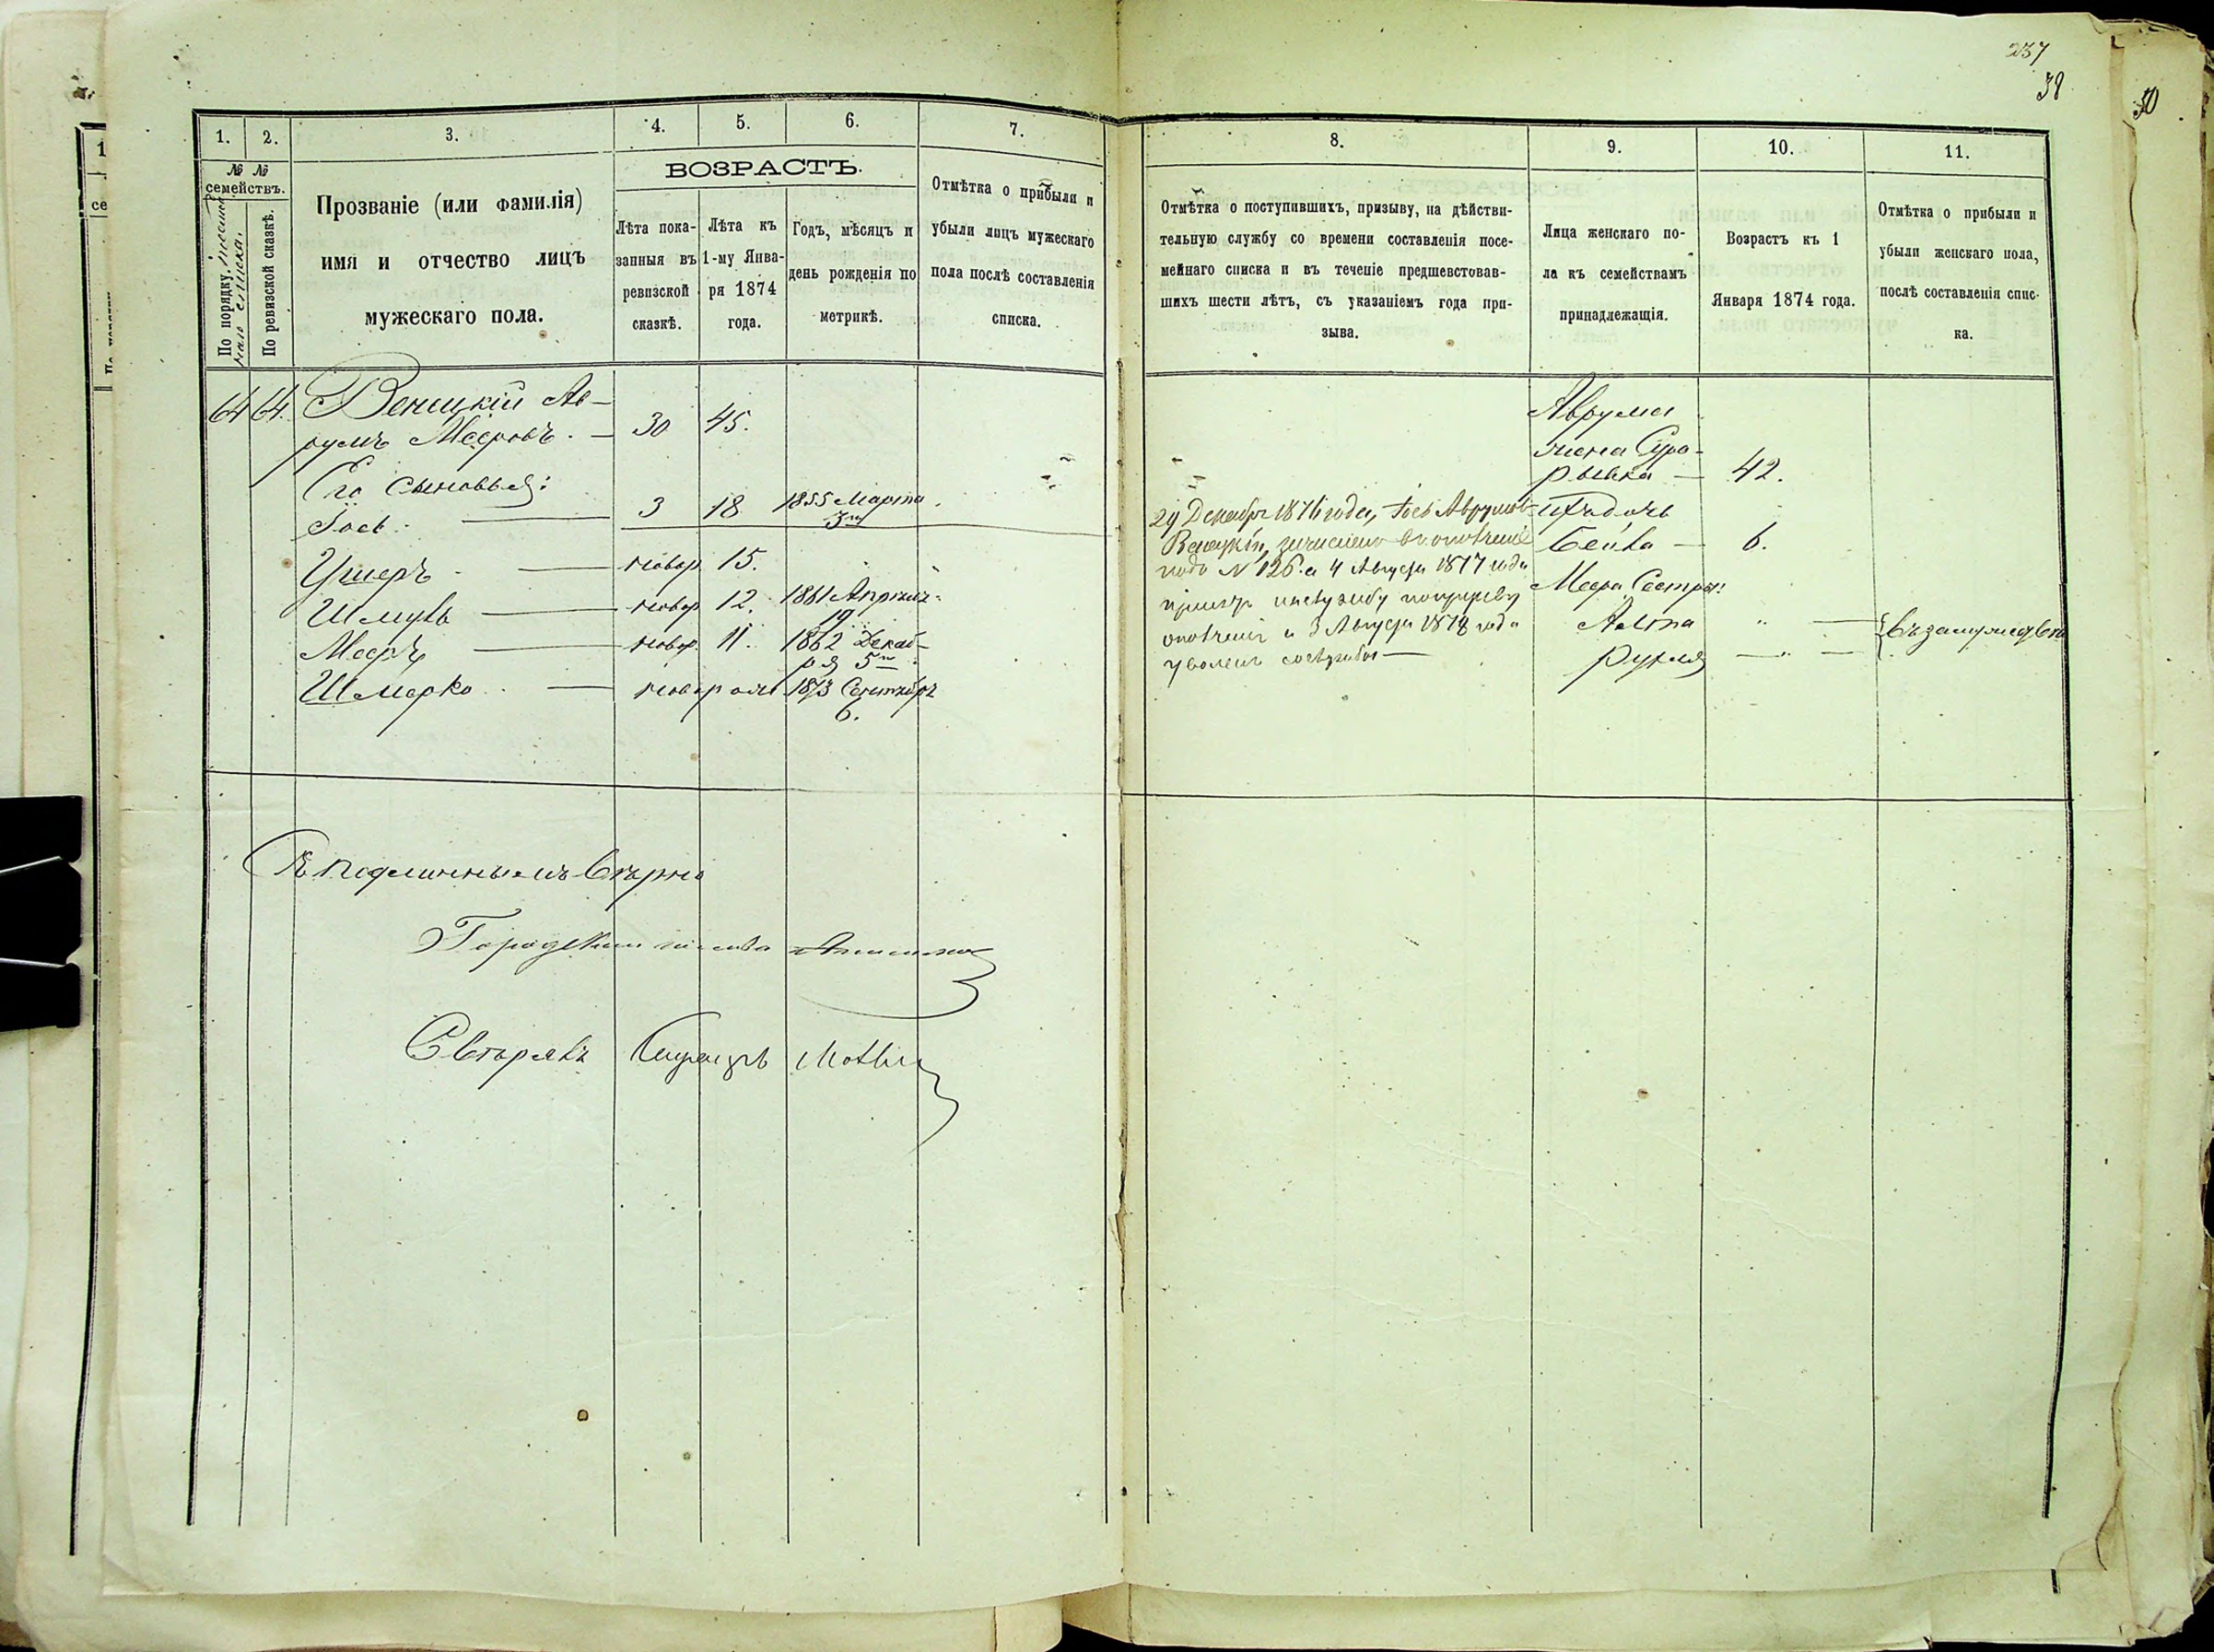 237
38
30
1.
2.
3.
4.
5.
6.
7.
№ №
семействъ.
По порядку
По ревизской сказкѣ.
Прозваніе (или фамилія)
имя и отчество лицъ
мужескаго пола.
ВОЗРАСТЪ.
Лѣта пока-
занныя въ
ревизской
сказкѣ.
Лѣта къ
1-му Янва-
ря 1874
года.
Годъ, мѣсяцъ и
день рожденія по
метрикѣ.
Отмѣтка о прибыли и
убыли лицъ мужескаго
пола послѣ составленія
списка.
8.
9.
10.
11.
Отмѣтка о поступившихъ, призыву, на дѣйстви-
тельную службу со времени составленія посе-
мейнаго списка и въ теченіе предшевстовав-
шихъ шести лѣтъ, съ указаніемъ года при-
зыва.
Лица женскаго по-
ла къ семействамъ
принадлежащія.
Возрастъ къ 1
Января 1874 года.
Отмѣтка о прибыли и
убыли женскаго пола,
послѣ составленія спис-
ка.
64 64. Веницкій Ав-
румъ Мееровъ. — 30 45.
Его сыновья:
Іось. — 3 18 1855 Марта
3го
Ушеръ — новор. 15.
Шмуль — новор. 12. 1861 Апрѣля
19
Мееръ — новор. 11. 1862 Декаб-
ря 5го
Шмерко — новор 1873 Сентября
6.
29 Декабря 1876 года, Іось Аврумов
Веницкій, зачисленъ въ ополченіе
подъ № 126. а 4 Августа 1877 года
принятъ
ополченія а 3 Августа 1878 года
уволенъ
Аврума
жена Сура-
Рывка — 42.
Бейла — 6.
Меера Сестры:
Алта " —
Рухля — " —
въ замужествѣ
Съ подлиннымъ вѣрно
Городской голова
Свѣрялъ